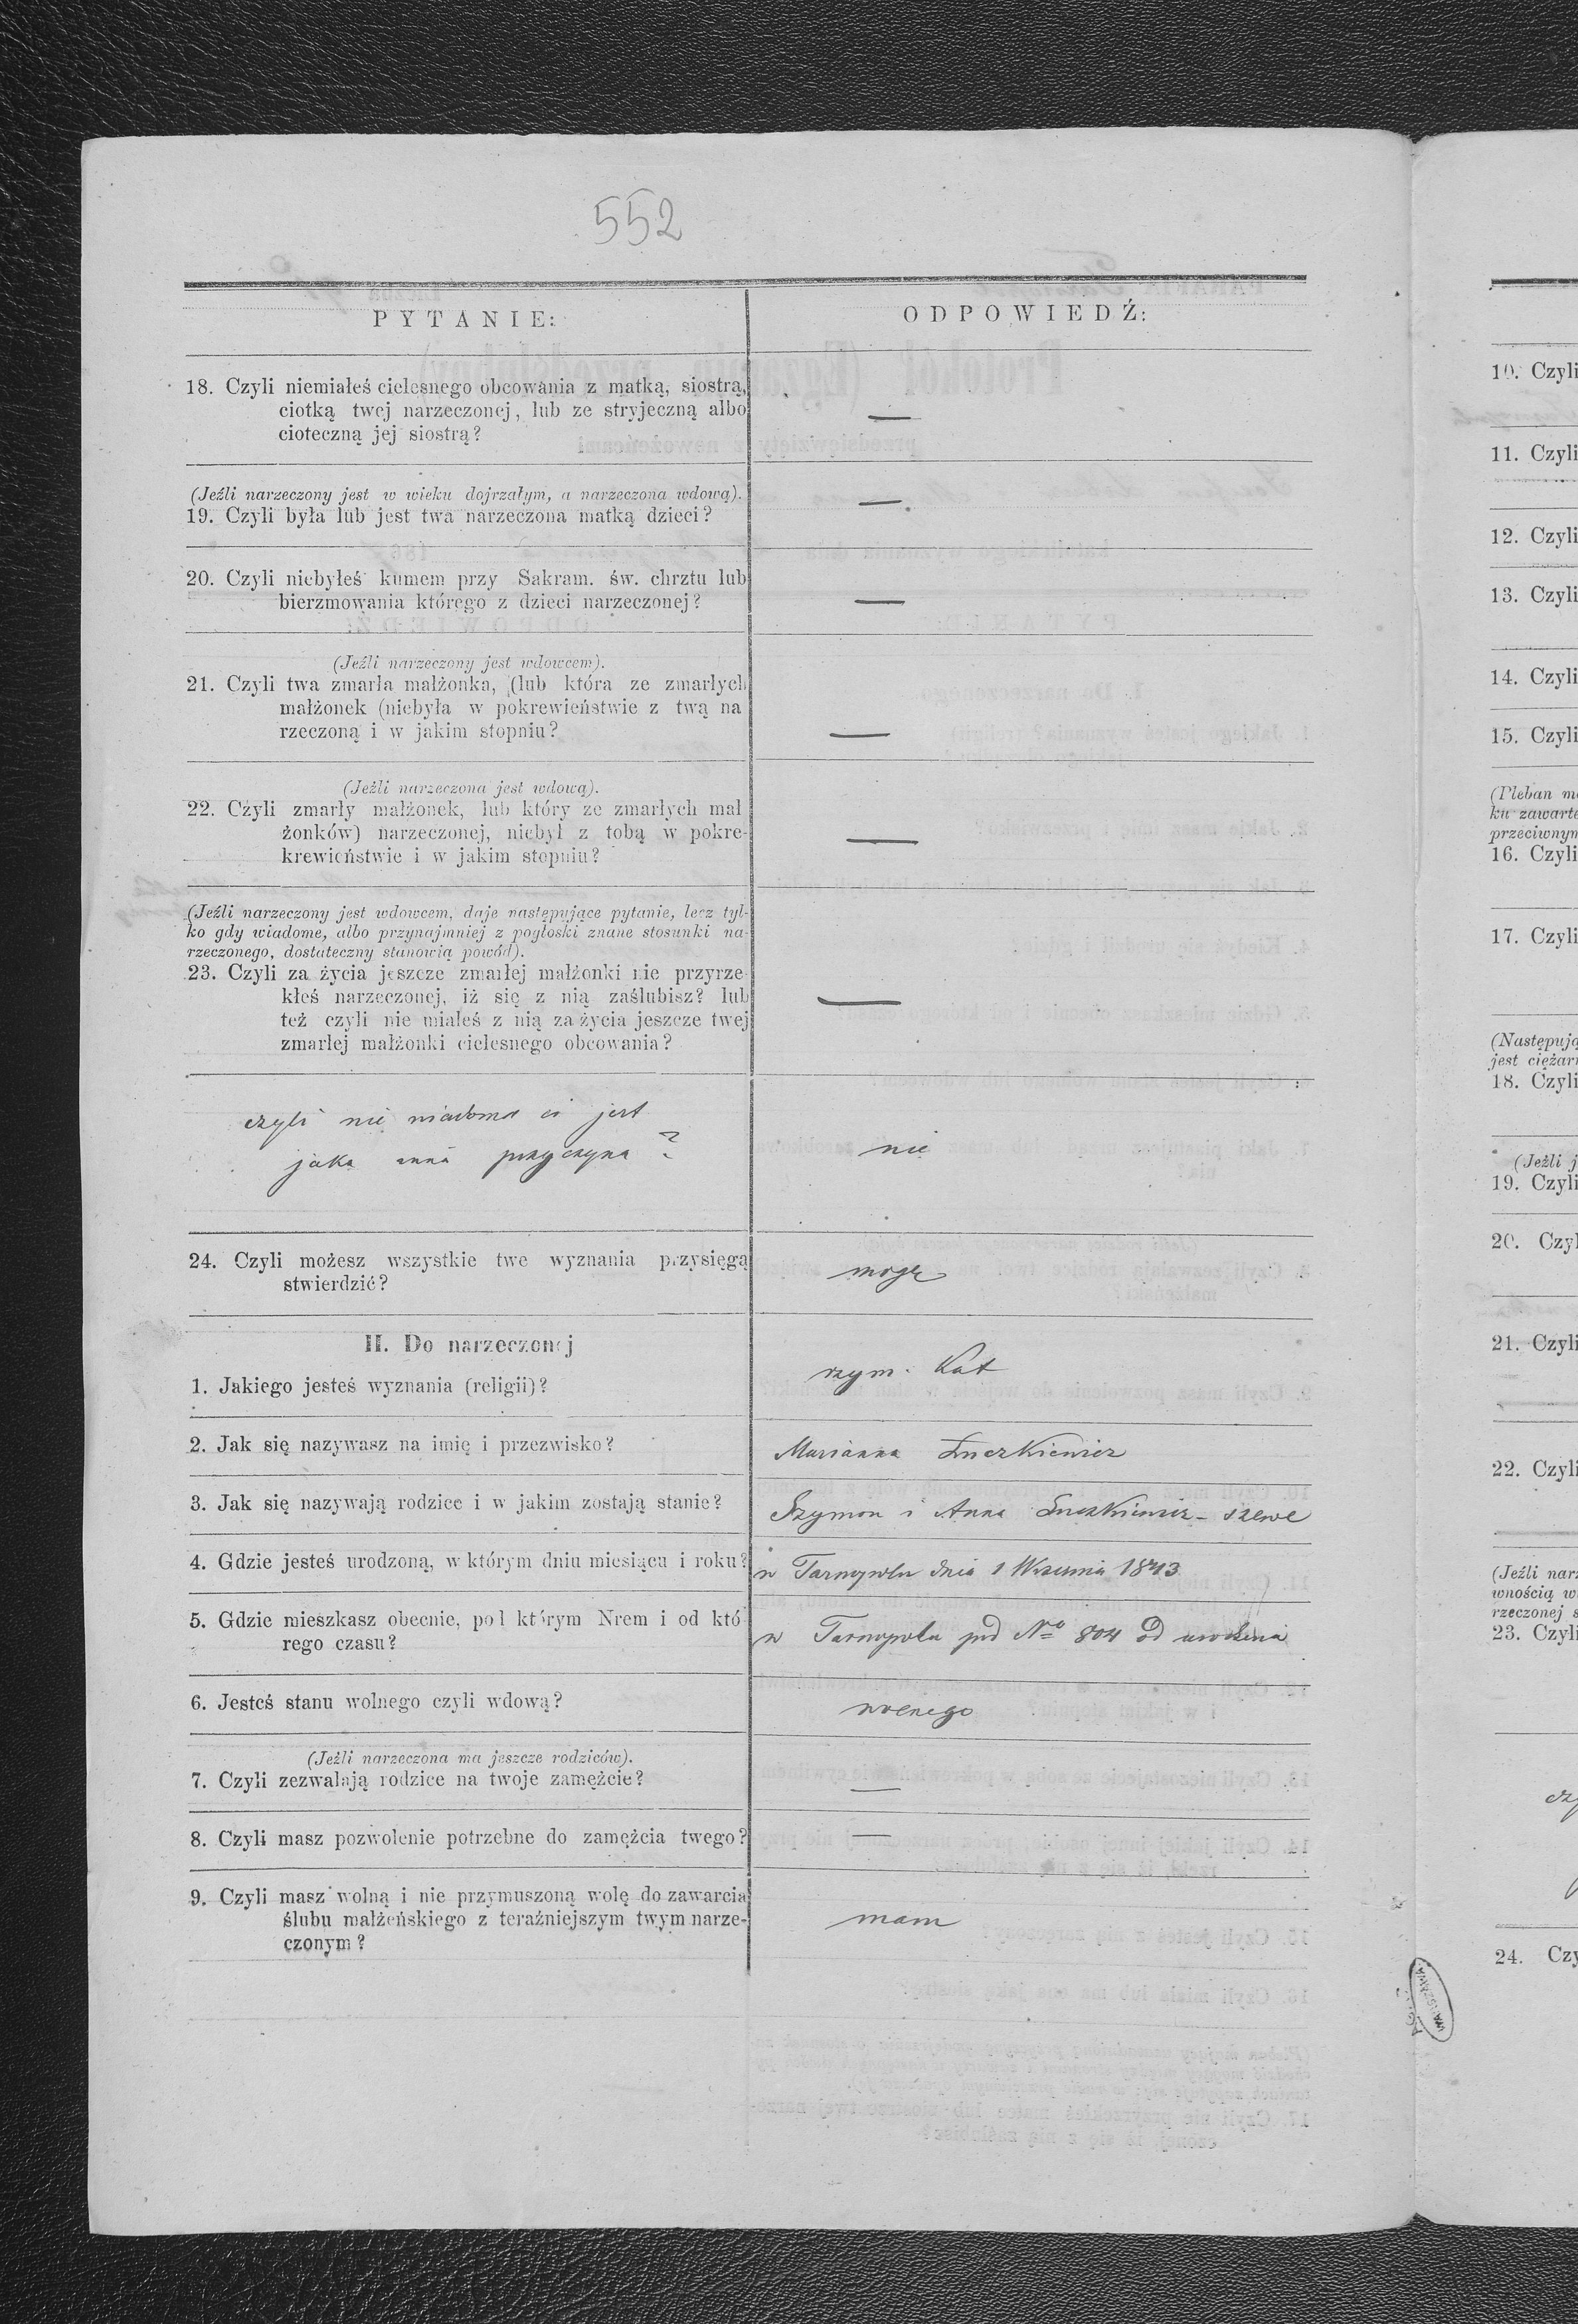 552
PYTANIE:
ODPOWIEDŹ:
18. Czyli niemiałeś cielesnego obcowania z matką, siostrą,
ciotką twej narzeczonej, lub ze stryjeczną albo
cioteczną jej siostrą?
—
(Jeźli narzeczony jest w wieku dojrzałym, a narzeczona wdową).
19. Czyli była lub jest twa narzeczona matką dzieci?
—
20. Czyli niebyłeś kumem przy Sakram. św. chrztu lub
bierzmowania którego z dzieci narzeczonej?
—
(Jeźli narzeczony jest wdowcem).
21. Czyli twa zmarła małżonka, (lub która ze zmarłych
małżonek (niebyła w pokrewieństwie z twą na
rzeczoną i w jakim stopniu?
—
(Jeźli narzeczona jest wdową).
22. Czyli zmarły małżonek, lub który ze zmarłych mał
żonków) narzeczonej, niebył z tobą w pokre-
krewieństwie i w jakim stopniu?
—
(Jeźli narzeczony jest wdowcem, daje następujące pytanie, lecz tyl-
ko gdy wiadome, albo przynajmniej z pogłoski znane stosunki na-
rzeczonego, dostateczny stanowią powód).
23. Czyli za życia jeszcze zmarłej małżonki nie przyrze-
kłeś narzeczonej, iż się z nią zaślubisz? lub
też czyli nie miałeś z nią za życia jeszcze twej
zmarłej małżonki cielesnego obcowania?
—
czyli nie wiadoma ci jest
jaka inna przyczyna?
nie
24. Czyli możesz wszystkie twe wyznania przysięgą
stwierdzić?
mogę
II. Do narzeczonej
1. Jakiego jesteś wyznania (religii)?
rzym. Kat
2. Jak się nazywasz na imię i przezwisko?
Marianna Łuczkiewicz
3. Jak się nazywają rodzice i w jakim zostają stanie?
Szymon i Anna Łuczkiewicz – szewc
4. Gdzie jesteś urodzoną, w którym dniu miesiącu i roku?
w Tarnopolu dnia 1 Września 1843
5. Gdzie mieszkasz obecnie, pod którym Nrem i od któ
rego czasu?
w Tarnopolu pod No 804 od urodzenia
6. Jesteś stanu wolnego czyli wdową?
wolnego
(Jeźli narzeczona ma jeszcze rodziców).
7. Czyli zezwalają rodzice na twoje zamęźcie?
—
8. Czyli masz pozwolenie potrzebne do zamęźcia twego?
—
9. Czyli masz wolną i nie przymuszoną wolę do zawarcia
ślubu małżeńskiego z teraźniejszym twym narze-
czonym?
mam
10. Czyli
11. Czyli
12. Czyli
13. Czyli
14. Czyli
15. Czyli
(Pleban
ku zawarte
przeciwnym
16. Czyli
17. Czyli
(Następują
jest
18. Czyli
(Jeźli j
19. Czyli
20. Czyl
21. Czyli
22. Czyli
(Jeźli narz
wnością w
rzeczonej s
23. Czyli
24. Czy